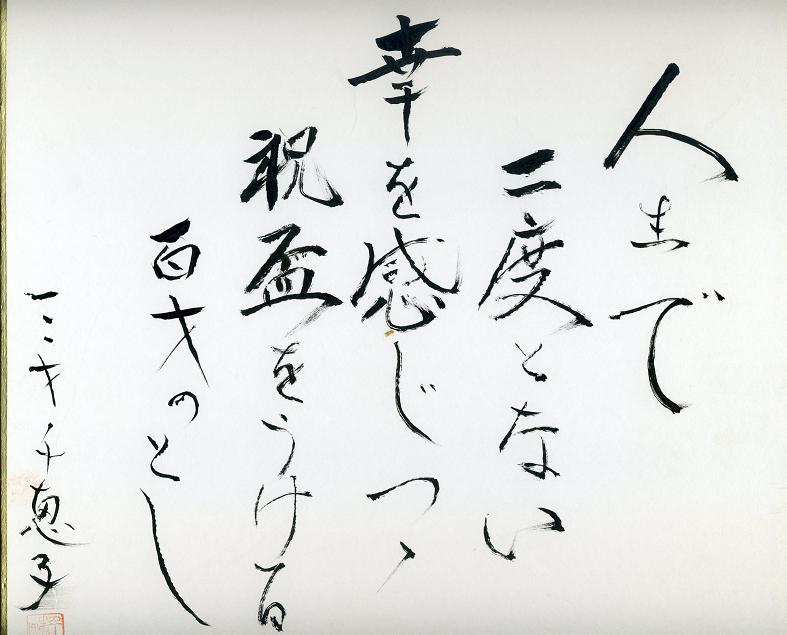 人生で
二度とない
幸を感じつゝ
祝盃をうける
百才のとし
千恵子